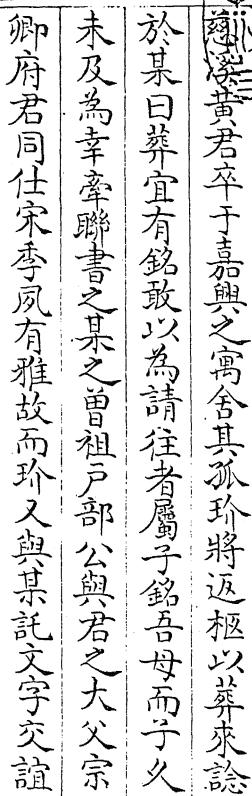 慈溪黃君卒于嘉興之寓舍其孤玠將返柩以葬來諗
於某曰葬宜有銘敢以為請往者屬子銘吾母而子久
未及為幸牽聯書之某之曾祖戶部公與君之大父宗
卿府君同仕宋季夙有雅故而玠又與某託文字交誼